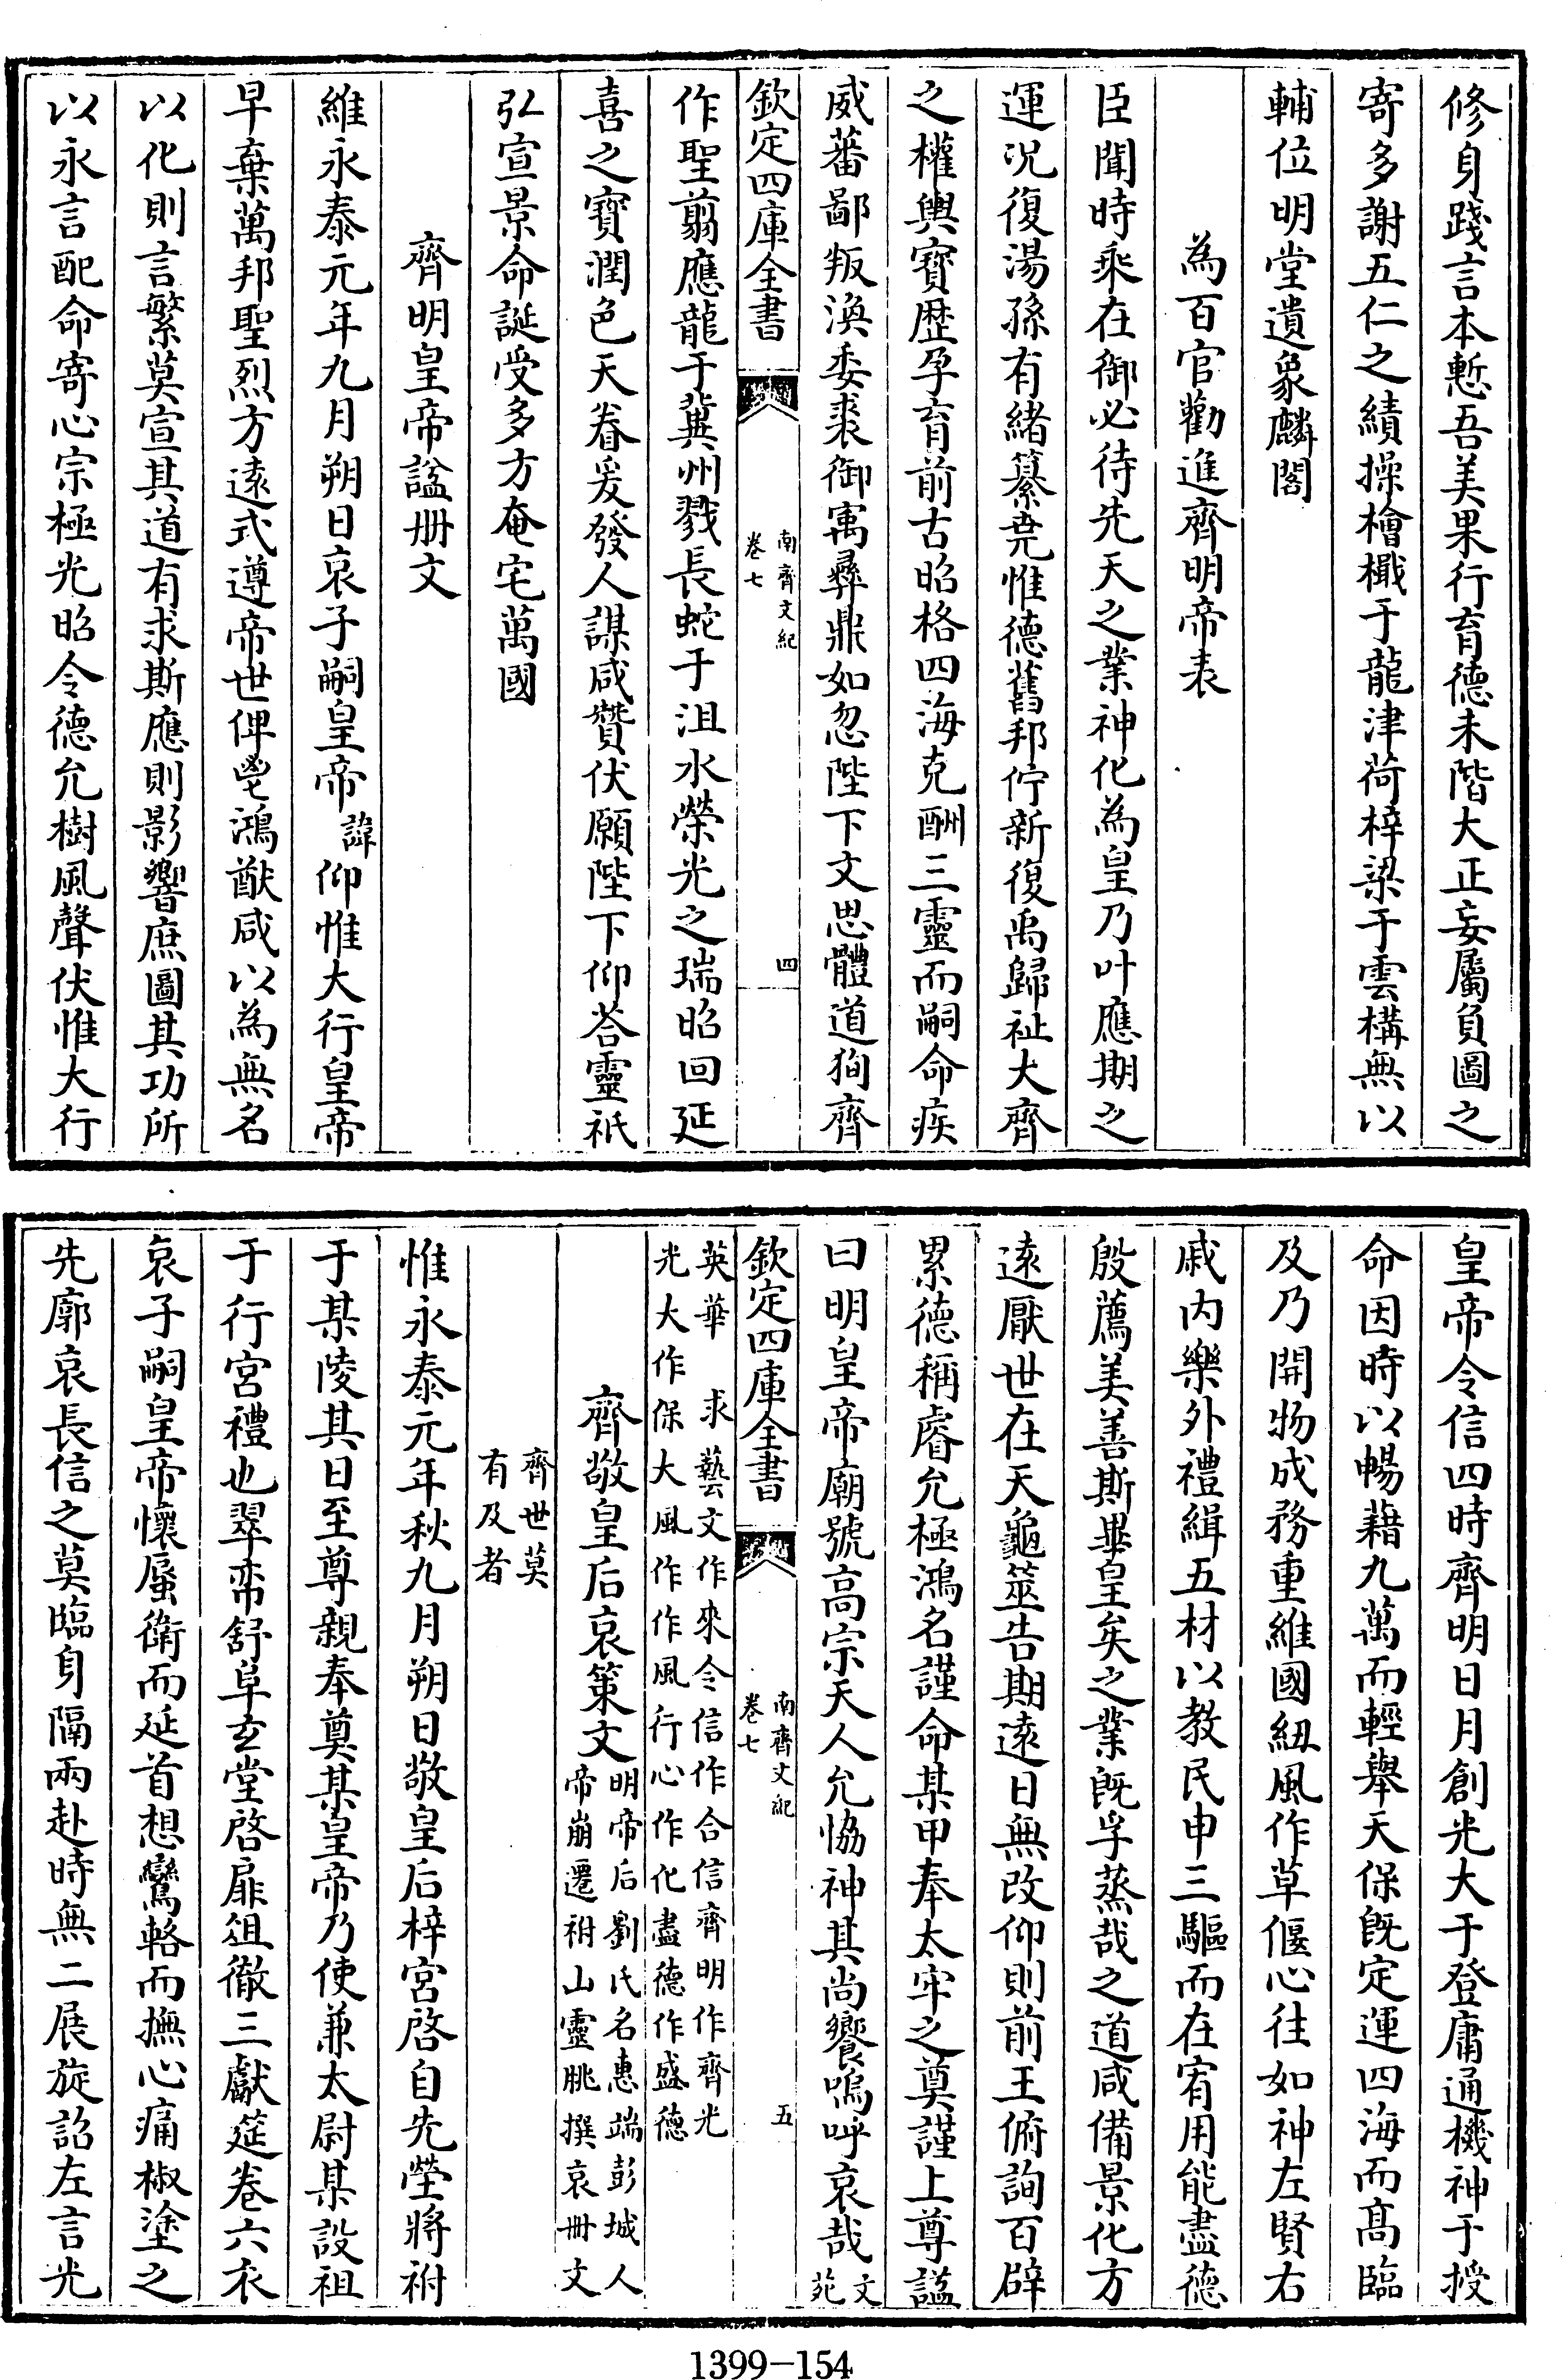 修身踐言本慙吾美果行育德未階大正妄屬負圖之
寄多謝五仁之績操檜檝于龍津荷梓梁于雲構無以
輔位明堂遺象麟閣
為百官勸進齊明帝表
臣聞時乘在御必待先天之業神化為皇乃叶應期之
運况復湯孫有緒纂堯惟德舊邦佇新復禹歸祉大齊
之權輿寶歷孕育前古昭格四海克酬三靈而嗣命疾
威蕃鄙叛渙委裘御㝢彞鼎如忽陛下文思體道狥齊
欽定四庫全書
南齊文紀
卷七
四
作聖翦應龍于冀州戮長蛇于沮水榮光之瑞昭回延
喜之寶潤色天眷爰發人謀咸贊伏願陛下仰荅靈祇
弘宣景命誕受多方奄宅萬國
齊明皇帝諡册文
維永泰元年九月朔日哀子嗣皇帝諱仰惟大行皇帝
早棄萬邦聖烈方遠式遵帝世俾鬯鴻猷咸以為無名
以化則言繁莫宣其道有求斯應則影響庶圖其功所
以永言配命寄心宗極光昭令德允樹風聲伏惟大行
皇帝令信四時齊明日月創光大于登庸通機神于授
命因時以暢藉九萬而輕舉天保既定運四海而髙臨
及乃開物成務重維國紐風作草偃心往如神左賢右
戚内樂外禮緝五材以教民申三驅而在宥用能盡德
殷薦美善斯畢皇矣之業既孚蒸哉之道咸備景化方
遠厭世在天龜筮告期遠日無改仰則前王俯詢百辟
累德稱睿允極鴻名謹命某甲奉太牢之奠謹上尊諡
曰明皇帝廟號高宗天人允恊神其尚饗嗚呼哀哉
文
苑
欽定四庫全書
南齊文紀
卷七
五
英華 求藝文作來令信作合信齊明作齊光
光大作保大風作作風行心作化盡德作盛德
齊敬皇后哀策文
明帝后劉氏名惠端彭城人
帝崩遷祔山靈朓撰哀册文
齊世莫
有及者
惟永泰元年秋九月朔日敬皇后梓宮啓自先塋將祔
于某陵其日至尊親奉奠某皇帝乃使兼太尉某設祖
于行宮禮也翠帟舒阜玄堂啓扉俎徹三獻筵卷六衣
哀子嗣皇帝懷蜃衛而延首想鸞輅而撫心痛椒塗之
先廓哀長信之莫臨身隔兩赴時無二展旋詔左言光
1399-154